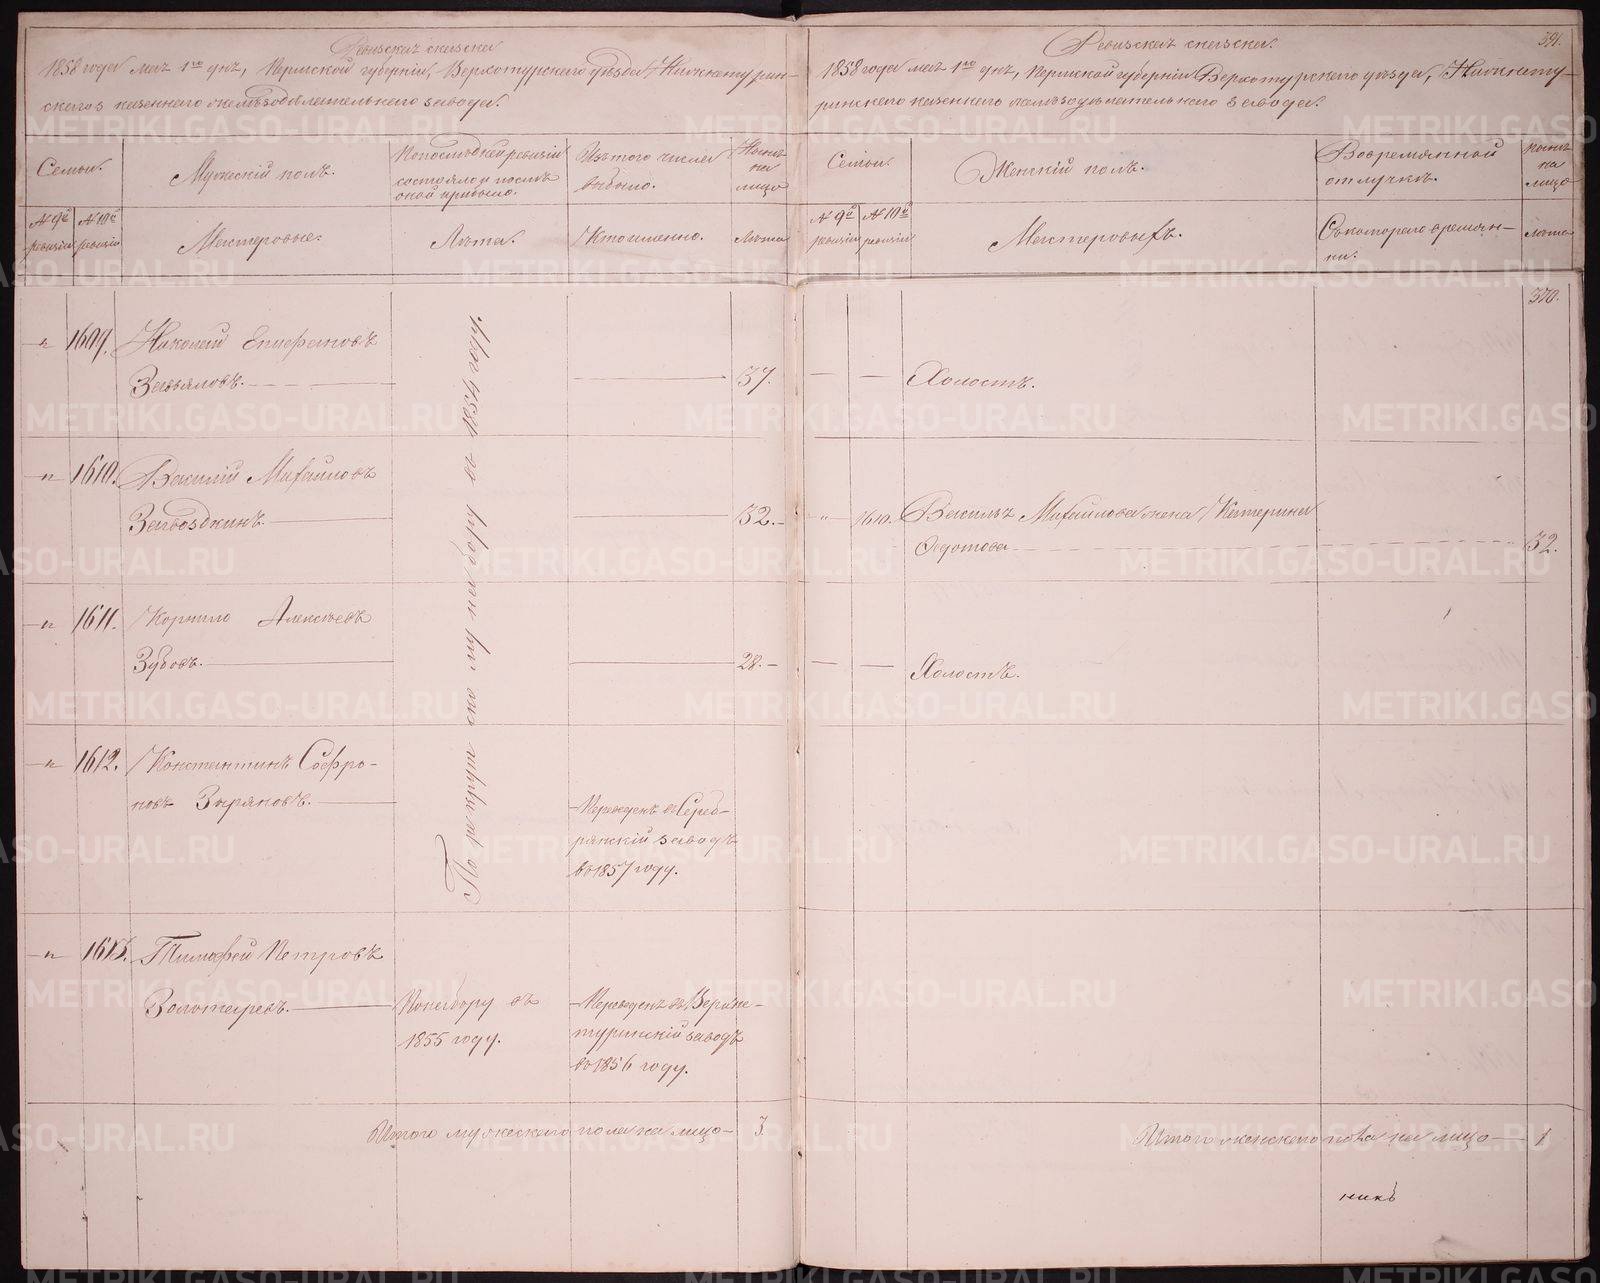 Ревизская сказка
1858 года мая 1го дня, Пермской губерніи, Верхотурскаго уѣзда, Нижнетурин-
скаго казеннаго желѣзодѣлательнаго завода.
Семьи.
Мужескій полъ.
По последней ревизіи
состояло и послѣ
оной прибыло.
Изъ того числа
выбыло.
Нынѣ
на
лицо
№ 9й
ревизіи
№ 10й
ревизіи
Мастеровые.
Лѣта.
Кто именно.
Лѣта
По рекрутскому набору въ 1854 году.
1609.
Николай Епифановъ
Завьяловъ.
37.
1610.
Василій Михайловъ
Загвоздкинъ.
32.
1611.
Корнило Алексѣевъ
Зубовъ.
28.
1612.
Константинъ Софро-
новъ Зыряновъ.
Переведенъ въ Сереб-
рянскій заводъ
въ 1857 году.
1613.
Тимофей Петровъ
Золотаревъ.
По набору въ
1855 году.
Переведенъ въ Верхне-
туринскій заводъ
въ 1856 году.
Итого мужескаго пола на лицо
3.
391.
Ревизская сказка.
1858 года мая 1го дня, Пермской губерніи Верхотурскаго уѣзда, Нижнету-
ринскаго казеннаго желѣзодѣлательнаго завода.
Семьи.
Женскій полъ.
Во временной
отлучкѣ.
Нынѣ
на
лицо
№ 9й
ревизіи
№ 10й
ревизіи
Мастеровыхъ.
Съ котораго времян-
ни.
Лѣта
370.
Холостъ.
1610.
Василья Михайлова жена Катерина
Федотова
32.
Холостъ.
Итого женскаго пола на лицо
1
никъ
METRIKI.GASO-URAL.RU